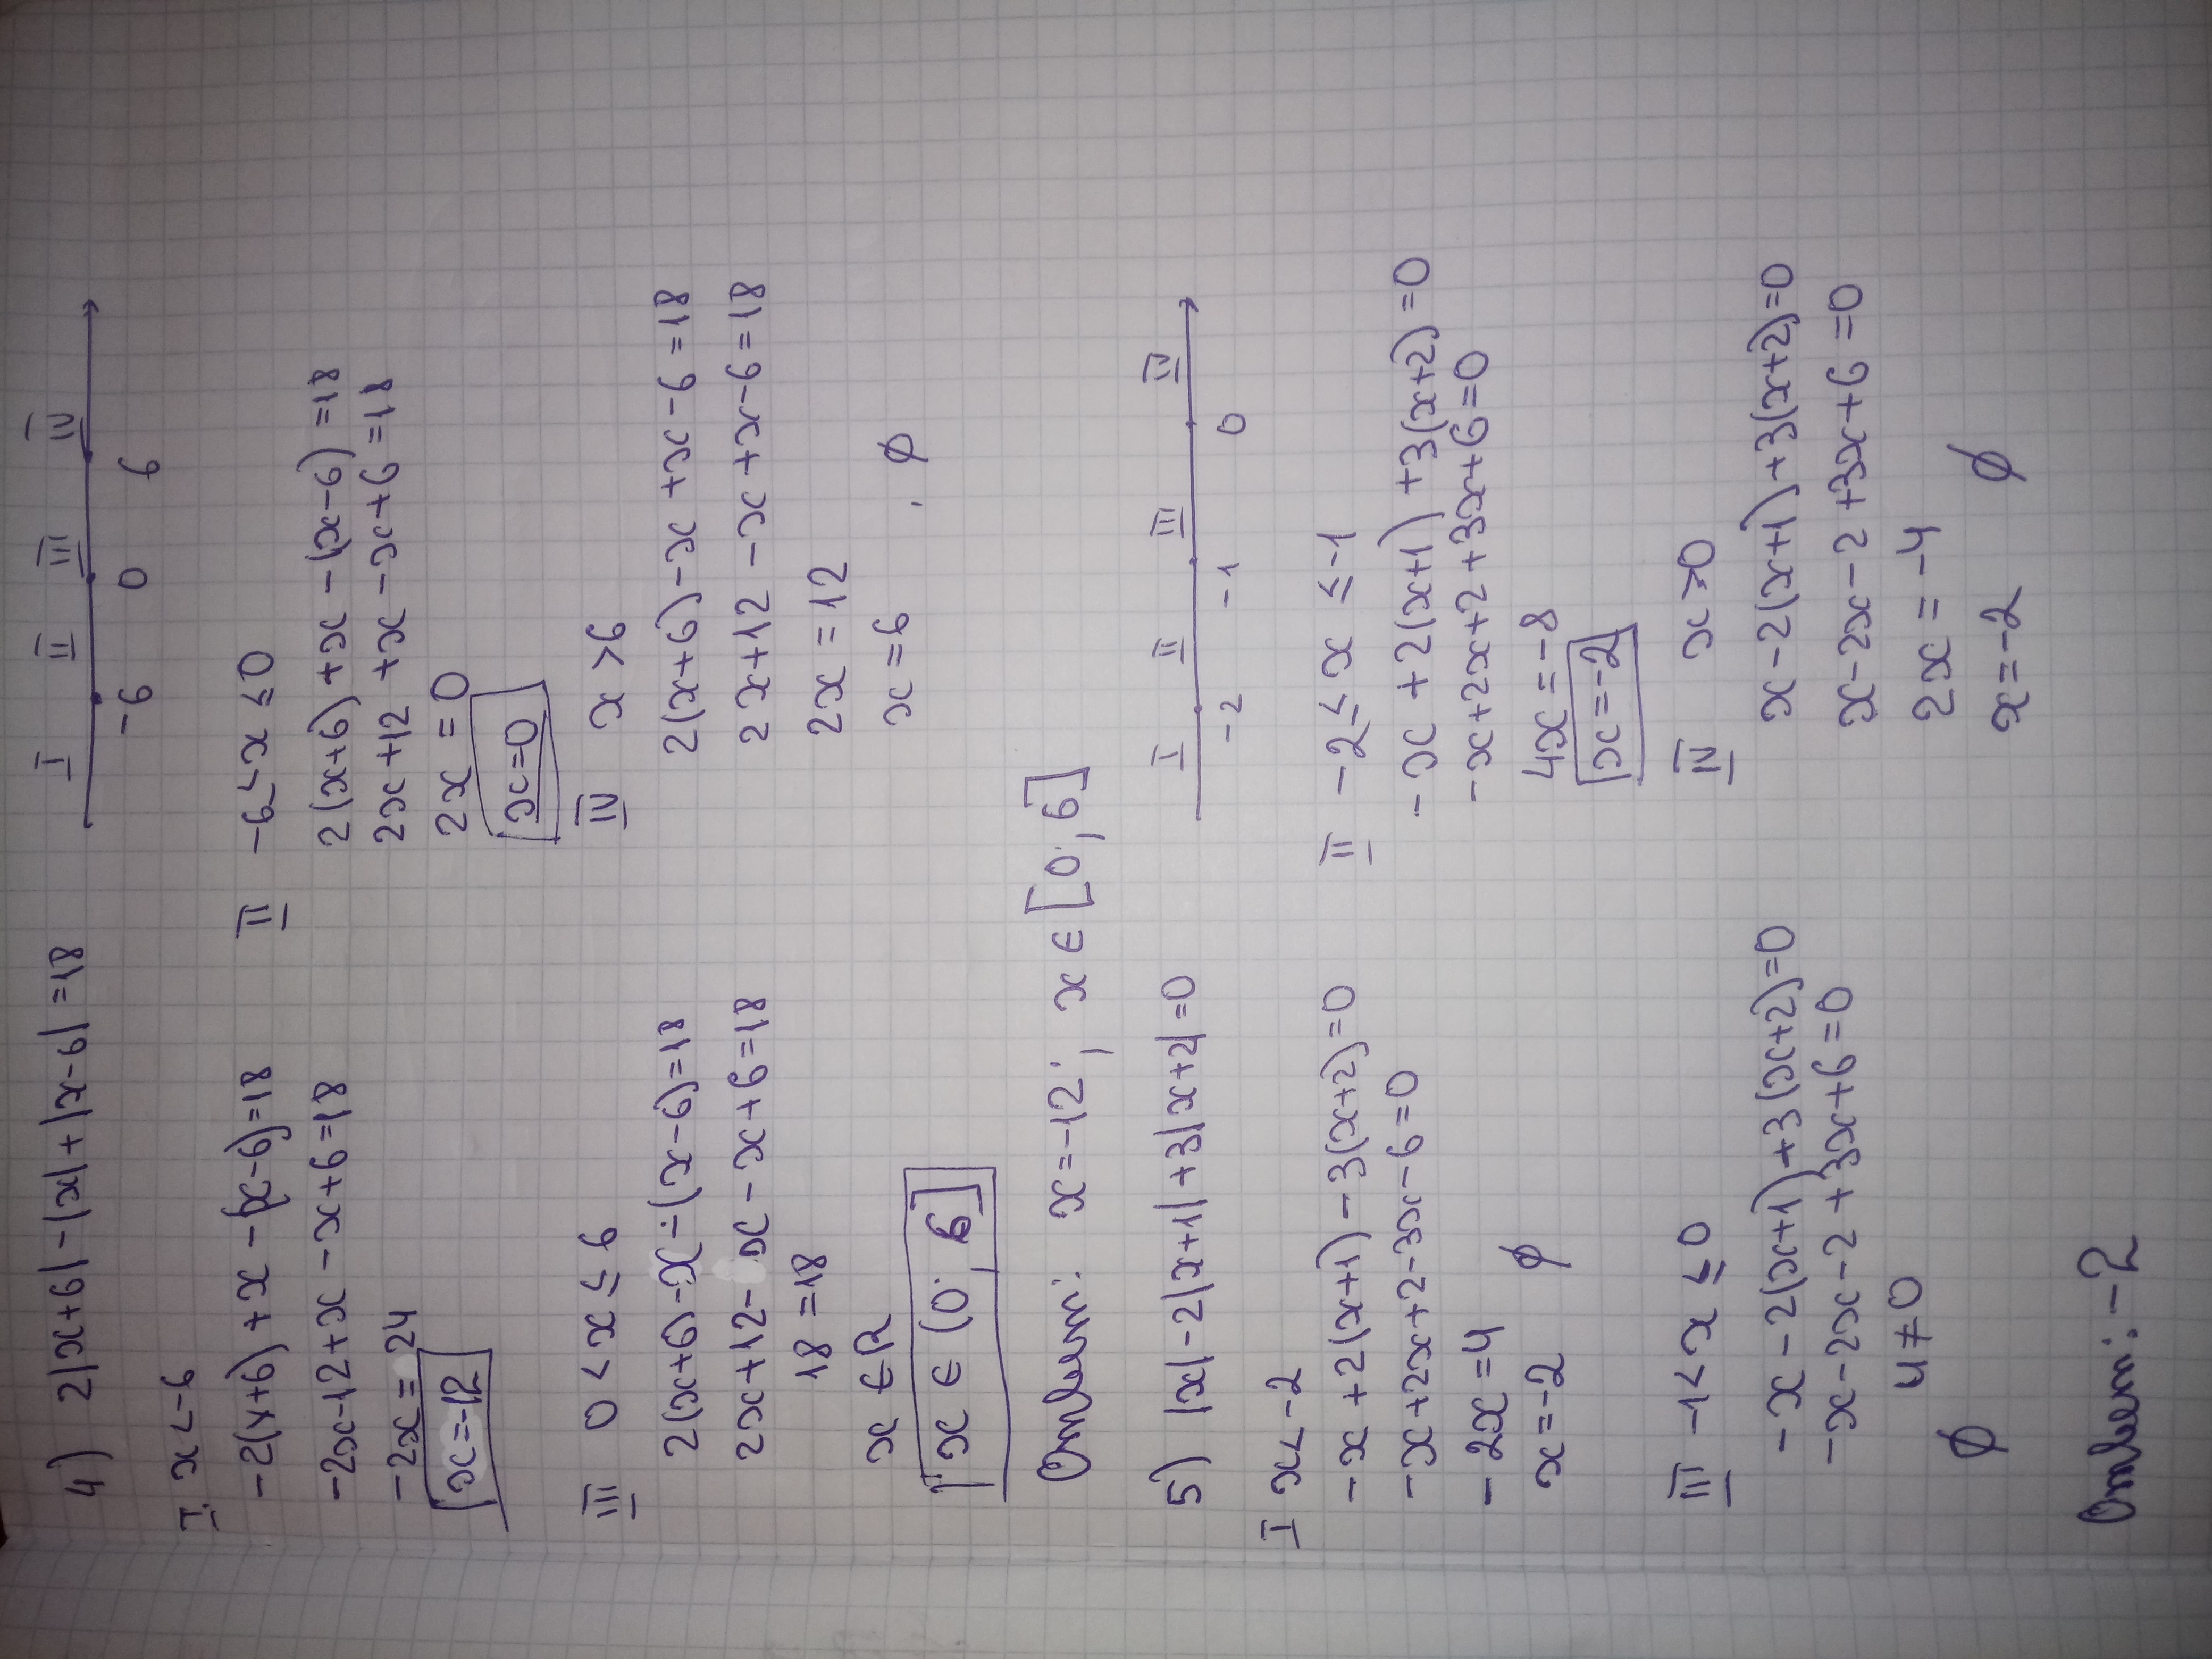 4) 2|x+6|-|x|+|x-6|=18
I II III IV
-6 0 6
I. x<-6
-2(x+6)+x-(x-6)=18
-2x-12+x-x+6=18
-2x=24
x=-12
II -6<x≤0
2(x+6)+x-(x-6)=18
2x+12+x-x+6=18
2x=0
x=0
III 0<x≤6
2(x+6)-x-(x-6)=18
2x+12-x-x+6=18
18=18
x∈R
x∈(0;6]
IV x>6
2(x+6)-x+x-6=18
2x+12-x+x-6=18
2x=12
x=6, ∅
Ответ: x=-12; x∈[0;6]
5) |x|-2|x+1|+3|x+2|=0
I II III IV
-2 -1 0
I x<-2
-x+2(x+1)-3(x+2)=0
-x+2x+2-3x-6=0
-2x=4
x=-2 ∅
II -2≤x≤-1
-x+2(x+1)+3(x+2)=0
-x+2x+2+3x+6=0
4x=-8
x=-2
III -1<x≤0
-x-2(x+1)+3(x+2)=0
-x-2x-2+3x+6=0
4≠0
∅
IV x>0
x-2(x+1)+3(x+2)=0
x-2x-2+3x+6=0
2x=-4
x=-2 ∅
Ответ: -2